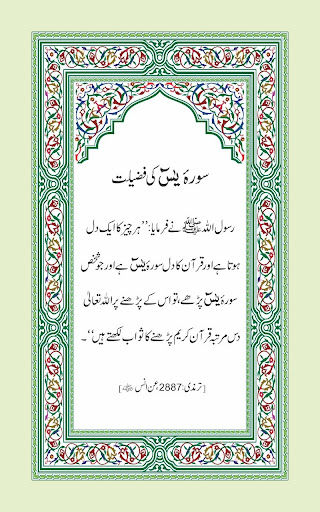 سورۂ یٰسٓ کی فضیلت
رسول اللہ ﷺ نے فرمایا: ’’ہر چیز کا ایک دل
ہوتا ہے اور قرآن کا دل سورۂ یٰسٓ ہے اور جو شخص
سورۂ یٰسٓ پڑھے، تو اس کے پڑھنے پر اللہ تعالیٰ
دس مرتبہ قرآن کریم پڑھنے کا ثواب لکھتے ہیں‘‘۔
[ترمذی:2887، عن انس ؓ]